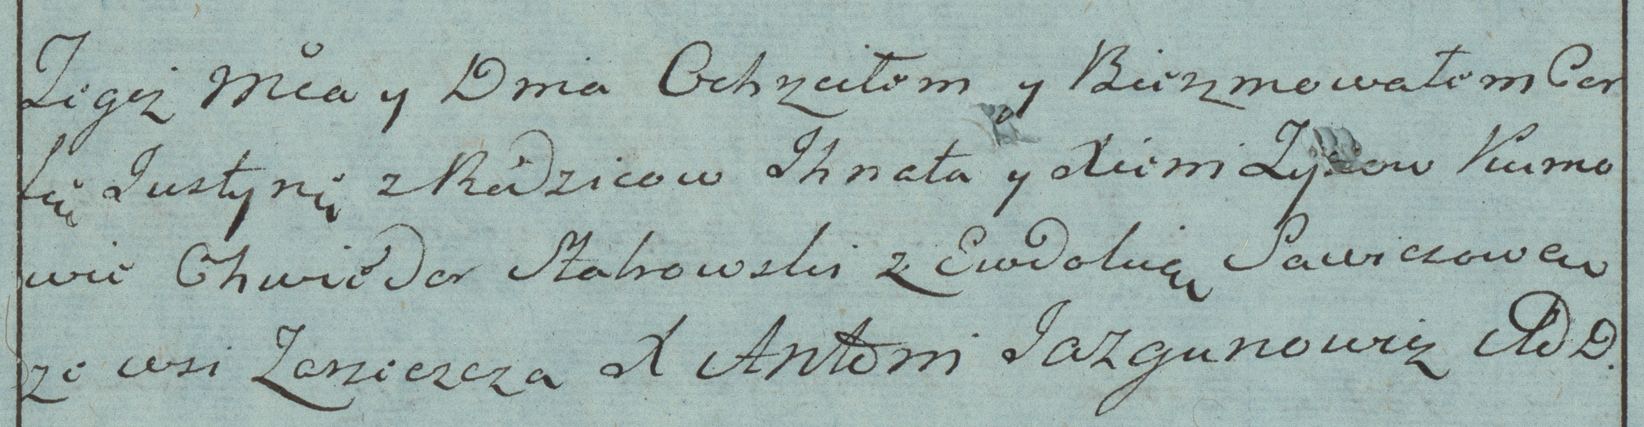 Tegoż Mca y Dnia Ochrzciłem y Bierzmowałem Cor
kę Justynę z Rodzicow Ihnata y Xieni Zyzow Kumo
wie Chwiedor Stabrowski z Ewdokią Sawiczową
ze wsi Zarzecza X Antoni Jazgunowicz